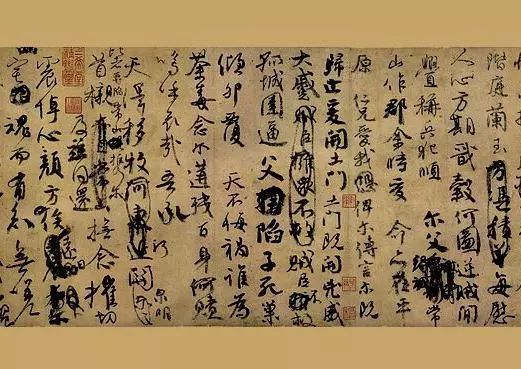 階庭蘭玉方憑積善每慰
人心方期戩穀何圖逆賊間
釁稱兵犯順爾父竭誠常
山作郡余時受命亦在平
原仁兄愛我俾爾傳言爾既
歸止爰開土門土門既開凶威
大蹙賊臣擁眾不救賊臣不救
孤城圍逼父陷子死巢
傾卵覆天不悔禍誰為
荼毒念爾遘殘百身何贖
嗚呼哀哉吾承
天澤移牧河關泉明
比者再陷常山攜爾
首櫬及茲同還撫念摧切
震悼心顏方俟遠日
宅魂而有知無嗟